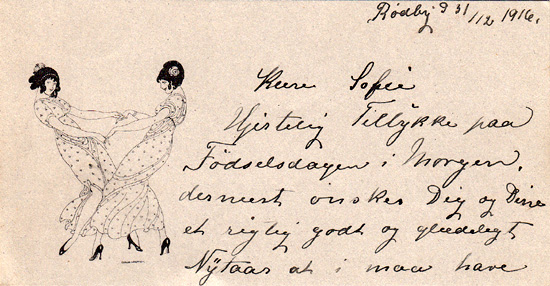 Rødby d 31/12 1916.
Kære Sofie
Hjertelig Tillykke paa
Födselsdagen i Morgen,
dernæst önskes Dig og Dine
et rigtig godt og glædeligt
Nÿtaar at i maa have